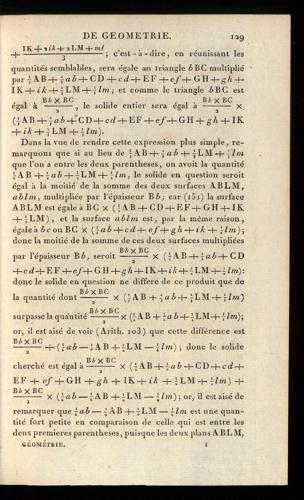 DE GEOMETRIE. 129
+ IK + 2ik + 2LM + ml / 3 ; c'est-à-dire, en réunissant les
quantités semblables, sera égale au triangle bBC multiplié
par AB + ab + CD + cd + EF + ef + GH + gh +
IK + ik + LM + lm; et comme le triangle bBC est
égal à Bb × BC / 2, le solide entier sera égal à Bb × BC / 2 ×
(AB + ab + CD + cd + EF + ef + GH + gh + IK
+ ik + LM + lm).
Dans la vue de rendre cette expression plus simple, re-
marquons que si au lieu de AB + ab + LM + lm
que l'on a entre les deux parentheses, on avoit la quantité
AB + ab + LM + lm, le solide en question seroit
égal à la moitié de la somme des deux surfaces ABLM,
ablm, multipliée par l'épaisseur Bb; car (151) la surface
ABLM est égale à BC × (AB + CD + EF + GH + IK
+ LM), et la surface ablm est, par la même raison,
égale à bc ou BC × (ab + cd + ef + gh + ik + lm);
donc la moitié de la somme de ces deux surfaces multipliées
par l'épaisseur Bb, seroit Bb × BC / 2 × (AB + ab + CD
+ cd + EF + ef + GH + gh + IK + ik + LM + lm):
donc le solide en question ne differe de ce produit que de
la quantité dont Bb × BC / 2 × (AB + ab + LM + lm)
surpasse la quantité Bb × BC / 2 × (AB + ab + LM + lm);
or, il est aisé de voir (Arith. 103) que cette différence est
Bb × BC / 2 + (ab − AB + LM − lm); donc le solide
cherché est égal à Bb × BC / 2 × (AB + ab + CD + cd +
EF + ef + GH + gh + IK + ik + LM + lm) +
Bb × BC / 2 × (ab − AB + LM − lm); or, il est aisé de
remarquer que ab − AB + LM − lm est une quan-
tité fort petite en comparaison de celle qui est entre les
deux premieres parentheses, puisque les deux plans ABLM,
GÉOMÉTRIE. I